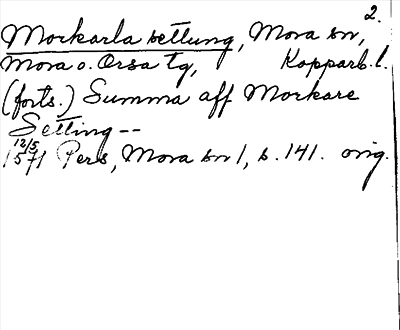 2.
Morkarla settung, Mora sn,
Mora o. Orsa tg, Kopparb.l.
(forts.) Summa aff Morkare
Setting--
12/5
1571 Pers, Mora sn 1, s. 141. orig.